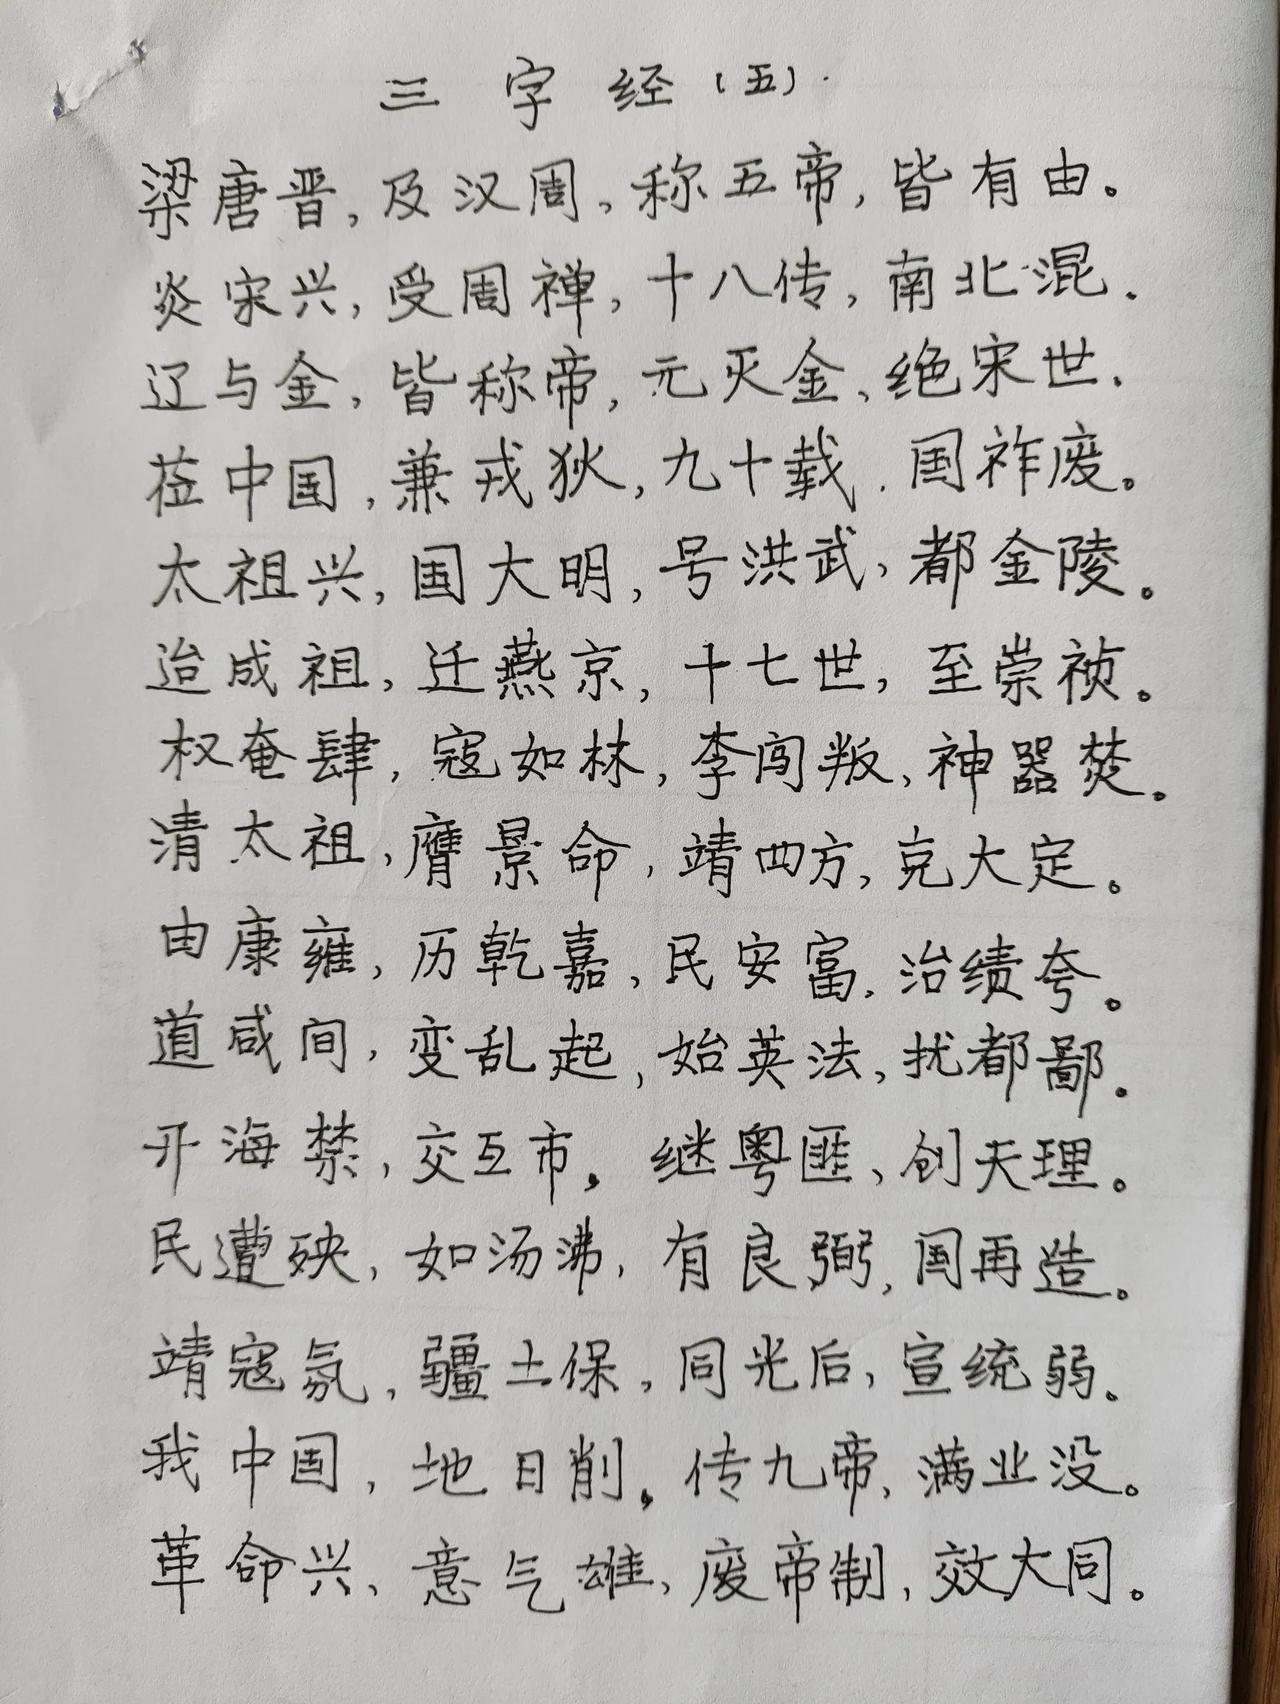 三字经(五).
梁唐晋,及汉周,称五帝,皆有由。
炎宋兴,受周禅,十八传,南北混.
辽与金,皆称帝,元灭金、绝宋世.
莅中国,兼戎狄,九十载.国祚废。
太祖兴,国大明,号洪武,都金陵。
迨成祖,迁燕京,十七世,至崇祯。
权奄肆,寇如林,李闯叛,神器焚。
清太祖,膺景命,靖四方,克大定。
由康雍,历乾嘉,民安富.治绩夸。
道咸间,变乱起,始英法,扰都鄙.
开海禁,交互市,继粤匪、创天理。
民遭殃,如汤沸,有良弼,国再造。
靖寇氛,疆土保,同光后,宣统弱.
我中国,地日削,传九帝,满业没。
革命兴、意气雄、废帝制,效大同。